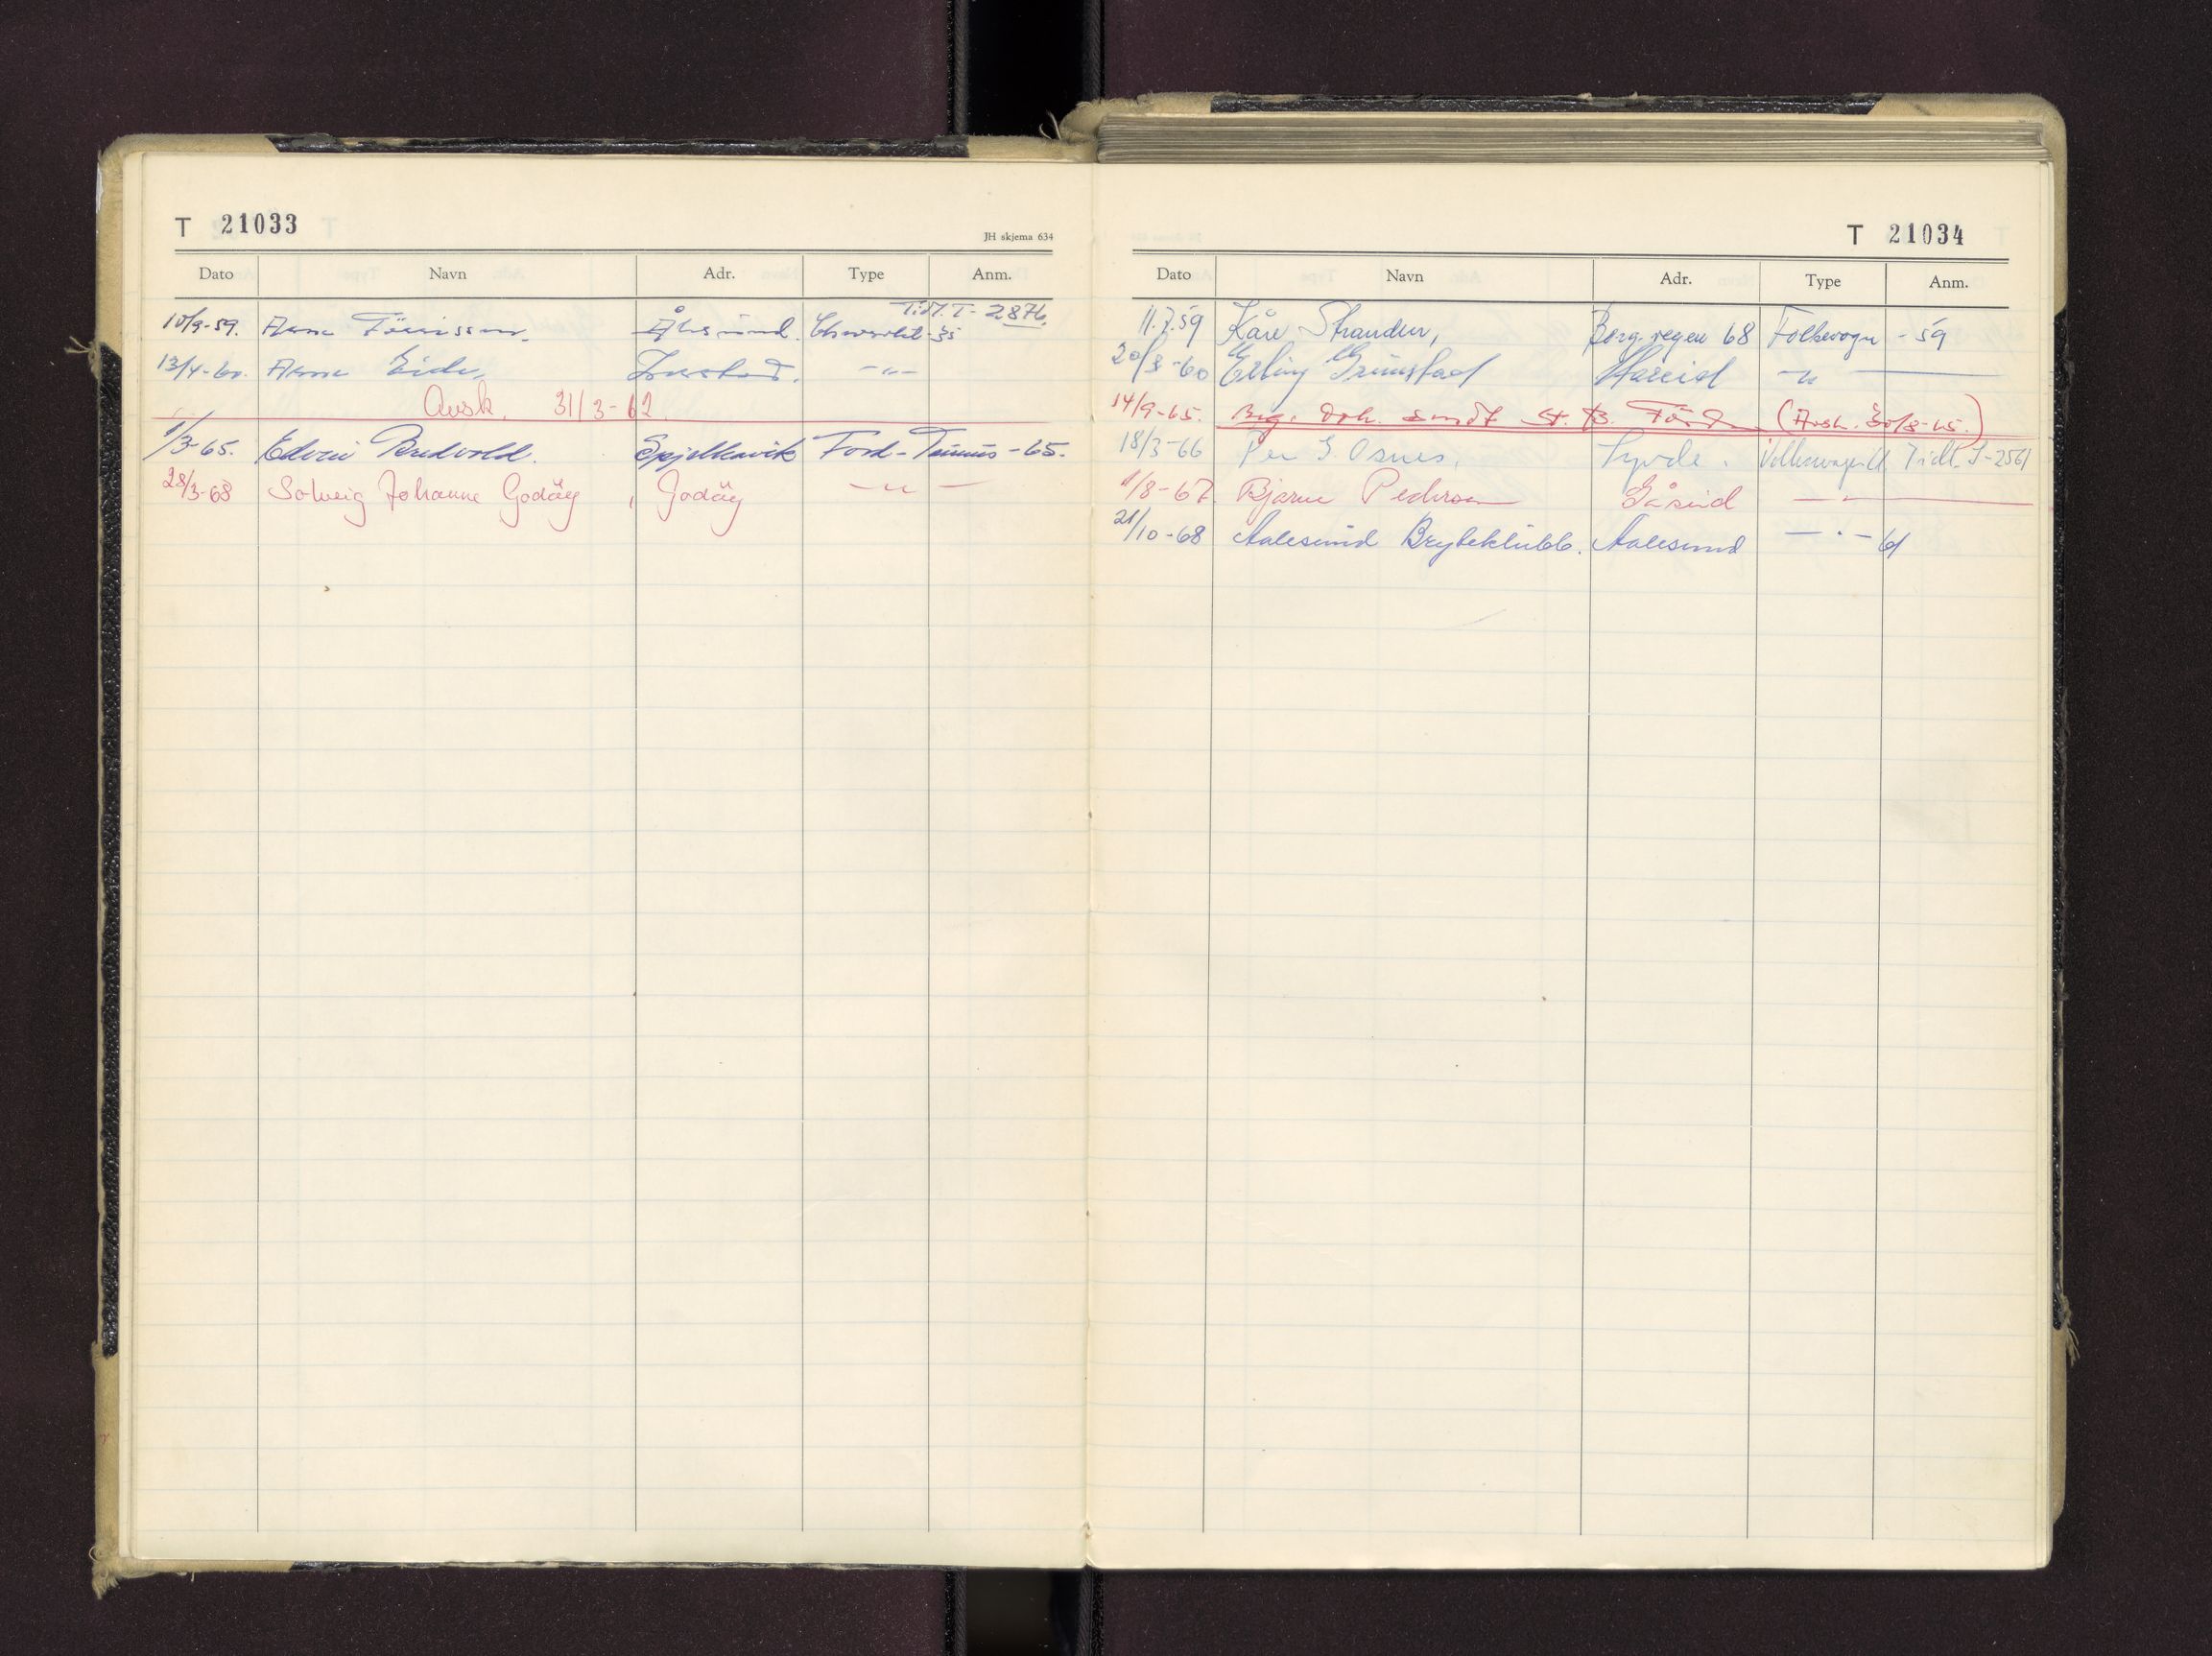 T 21033
JH skjema 634
Dato Navn Adr. Type Anm.
Tidl. T- 2876.
10/9-59. Arne Tönnissen. Ålesund. Chevrolet-35
13/4-60. Arne Eide, — " —
Avsk. 31/3-62
1/3-65. Edvin Bredvold. Spjelkavik Ford-Taunus-65.
28/3-68 Solveig Johanne Godöy, Godöy — " —
T 21034
Dato Navn Adr. Type Anm.
11.7.59 Kåre Strander, Borg.vegen 68 Folkevogn - 59
20/8-60 Erling Grimstad Hareid — " —
14/9-65. Reg. dok. sendt St. B. Förde (Avsk. 30/8-65.)
18/3-66 Per G. Osnes, Syvde. Volkswagen 61 Tidl. S-2561
1/8-67. Bjarne Pedersen Gåseid — " —
21/10-68 Aalesund Bryteklubb. Aalesund — " — 61